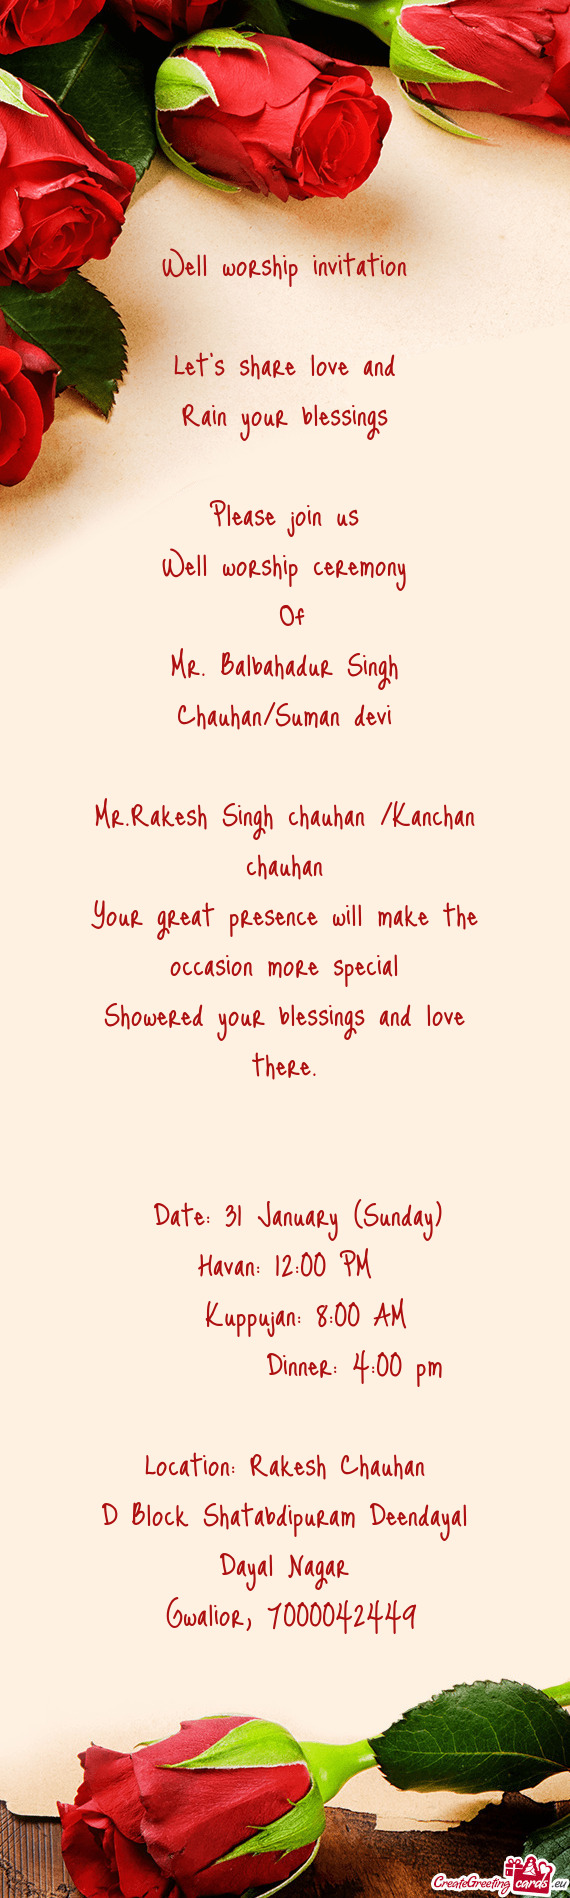 Well worship invitation
Let's share love and
Rain your blessings
Please join us
Well worship ceremony
Of
Mr. Balbahadur Singh
Chauhan/Suman devi
Mr.Rakesh Singh chauhan /Kanchan
chauhan
Your great presence will make the
occasion more special
Showered your blessings and love
there.
Date: 31 January (Sunday)
Havan: 12:00 PM
Kuppujan: 8:00 AM
Dinner: 4:00 pm
Location: Rakesh Chauhan
D Block Shatabdipuram Deendayal
Dayal Nagar
Gwalior, 7000042449
CreateGreetingcards.eu